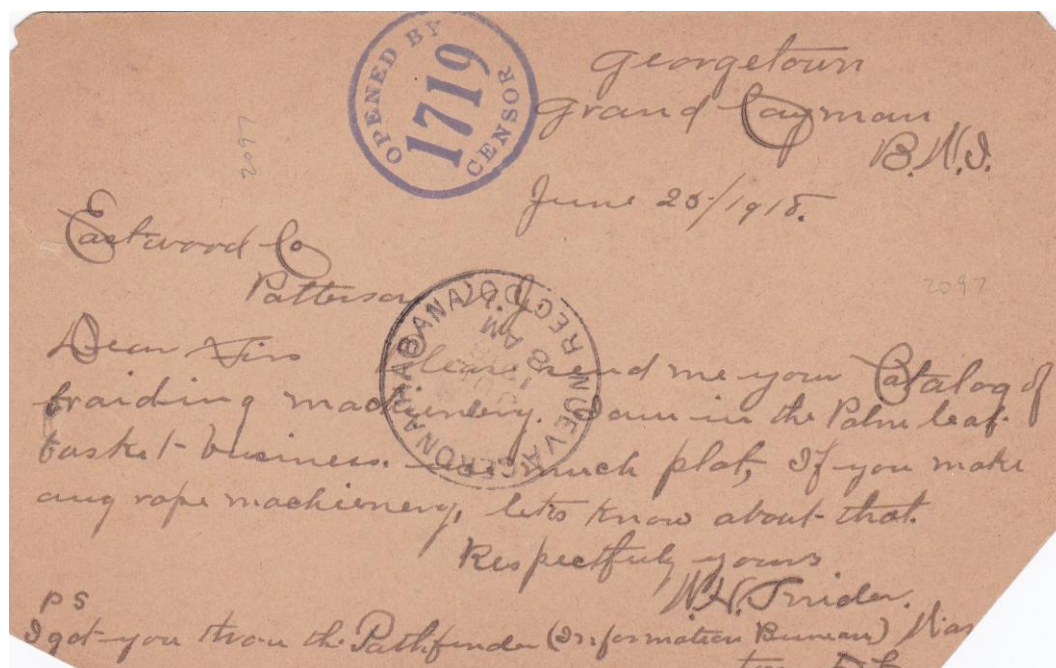 OPENED BY
1719
CENSOR
Georgetown
Grand Cayman
B.W.I.
June 25/1918.
2097
Eastwood Co
Patterson N.J.
2097
NUEVA GERONA HABANA REC'DO
8 AM
Dear Sirs Please send me your Catalog of
braiding machinery. I am in the Palm leaf
basket business. use much plat, If you make
any rope machienery, lets know about that.
Respectfuly yours
PS
I got you throu the Pathfinder (Information Bureau) Was